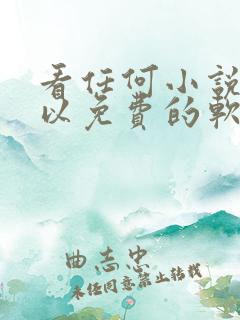 看任何小說
以免費的軟
曲志忠
未经同意禁止转载